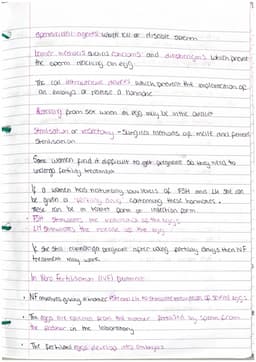 Spermicidal agents which kill or disable sperm
barrier methods such as condoms and diaphragms which prevent
the sperm reaching an egg
The coil intrauterine devices which prevent the implantation of
an embryo or release a hormone
Abstaining from sex when an egg may be in the oviduct
Sterilisation or vasectomy - surgical methods of male and female
sterilisation
Some women find it difficult to get pregnant so they need to
undergo fertility treatment
If a women has naturally low levels of FSH and LH she can
be given a fertility drug containing these hormones.
These can be in tablet form or injection form
• FSH stimulates the maturation of the eggs
LH stimulates the release of the egg
If she still cannot get pregnant after using fertility drugs then IVF
treatment may work
In Vitro Fertilisation (IVF) Process
• IVF involves giving a mother FSH and LH to stimulate maturation of several eggs
• The eggs are collected from the mother fertilised by sperm from
the father in the laboratory
• The fertilised eggs develop into embryos